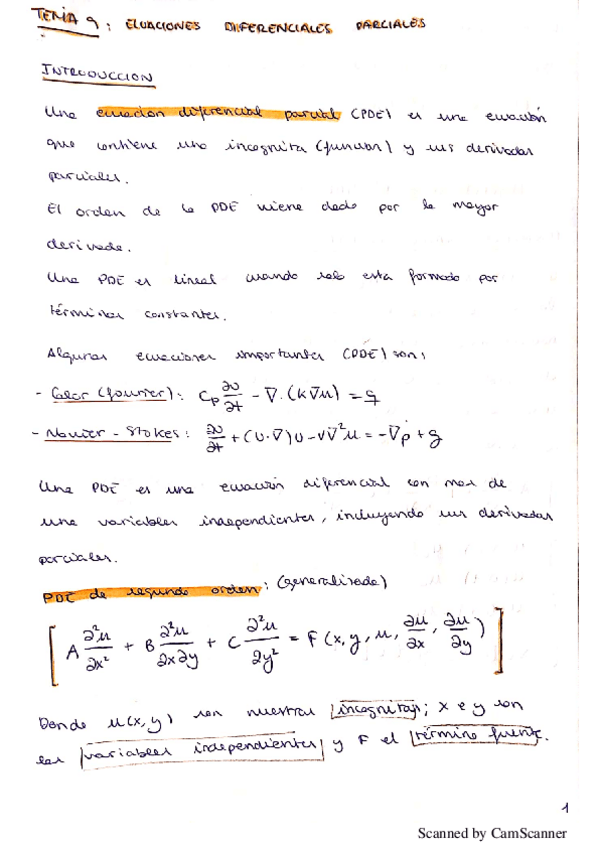 TEMA 9: ECUACIONES DIFERENCIALES PARCIALES
INTRODUCCION
Una ecuacion diferencial parcial (PDE) es una ecuación
que contiene una incognita (funcion) y sus derivadas
parciales.
El orden de la PDE viene dado por la mayor
derivada.
Una PDE es lineal cuando solo esta formado por
términos constantes.
Algunas ecuaciones importantes (PDE) son:
- Calor (fourier): Cp ∂u/∂t - ∇·(k∇u) = q
- Navier - Stokes: ∂u/∂t + (u·∇)u - ν∇²u = -∇p + g
Una PDE es una ecuación diferencial con mas de
una variables independientes, incluyendo sus derivadas
parciales.
PDE de segundo orden: (generalizada)
[A ∂²u/∂x² + B ∂²u/∂x∂y + C ∂²u/∂y² = F(x, y, u, ∂u/∂x, ∂u/∂y)]
Donde u(x,y) son nuestras incognitas; x e y son
las variables independientes y F el término fuente.
1
Scanned by CamScanner